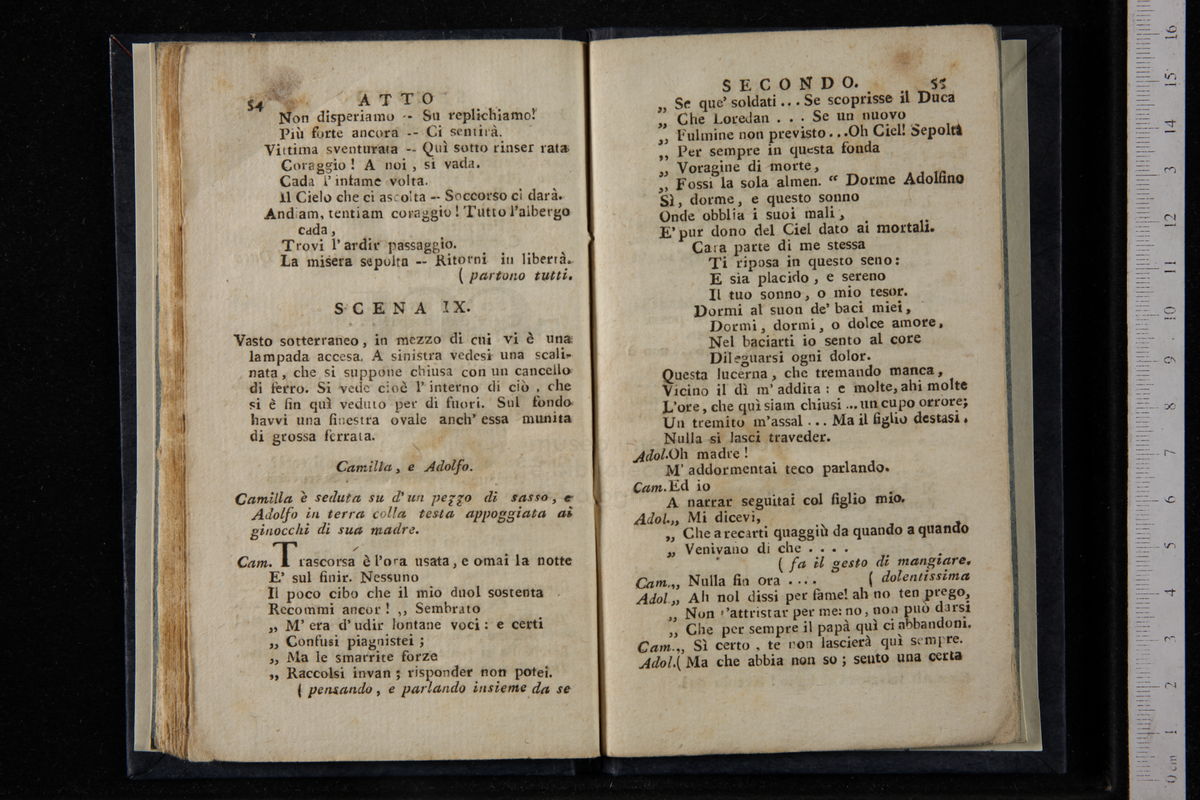 54 ATTO
Non disperiamo -- Su replichiamo!
Più forte ancora -- Ci sentirà.
Vittima sventurata -- Quì sotto rinser rata
Coraggio! A noi, si vada.
Cada l'infame volta.
Il Cielo che ci ascolta -- Soccorso ci darà.
Andiam, tentiam coraggio! Tutto l'albergo
cada,
Trovi l'ardir passaggio.
La misera sepolta -- Ritorni in libertà.
( partono tutti.
SCENA IX.
Vasto sotterraneo, in mezzo di cui vi è una
lampada accesa. A sinistra vedesi una scali-
nata, che si suppone chiusa con un cancello
di ferro. Si vede cioè l'interno di ciò, che
si è fin quì veduto per di fuori. Sul fondo
havvi una finestra ovale anch' essa munita
di grossa ferrata.
Camilla, e Adolfo.
Camilla è seduta su d'un pezzo di sasso, e
Adolfo in terra colla testa appoggiata ai
ginocchi di sua madre.
Cam. Trascorsa è l'ora usata, e omai la notte
E' sul finir. Nessuno
Il poco cibo che il mio duol sostenta
Recommi ancor! ,, Sembrato
,, M'era d'udir lontane voci: e certi
,, Confusi piagnistei;
,, Ma le smarrite forze
,, Raccolsi invan; risponder non potei.
( pensando, e parlando insieme da se
SECONDO. 55
,, Se que' soldati ... Se scoprisse il Duca
,, Che Loredan . . . Se un nuovo
,, Fulmine non previsto ...Oh Ciel! Sepolta
,, Per sempre in questa fonda
,, Voragine di morte,
,, Fossi la sola almen. “ Dorme Adolfino
Sì, dorme, e questo sonno
Onde obblia i suoi mali,
E' pur dono del Ciel dato ai mortali.
Cara parte di me stessa
Ti riposa in questo seno:
E sia placido, e sereno
Il tuo sonno, o mio tesor.
Dormi al suon de' baci miei,
Dormi, dormi, o dolce amore,
Nel baciarti io sento al core
Dileguarsi ogni dolor.
Questa lucerna, che tremando manca,
Vicino il dì m'addita: e molte, ahi molte
L'ore, che quì siam chiusi ... un cupo orrore;
Un tremito m'assal ... Ma il figlio destasi.
Nulla si lasci traveder.
Adol. Oh madre!
M'addormentai teco parlando.
Cam. Ed io
A narrar seguitai col figlio mio.
Adol. ,, Mi dicevi,
,, Che a recarti quaggiù da quando a quando
,, Venivano di che . . . .
( fa il gesto di mangiare.
Cam. ,, Nulla fin ora .... ( dolentissima
Adol. ,, Ah nol dissi per fame! ah no ten prego,
,, Non t'attristar per me: no, non può darsi
,, Che per sempre il papà quì ci abbandoni.
Cam. ,, Sì certo, te non lascierà quì sempre.
Adol. ( Ma che abbia non so; sento una certa